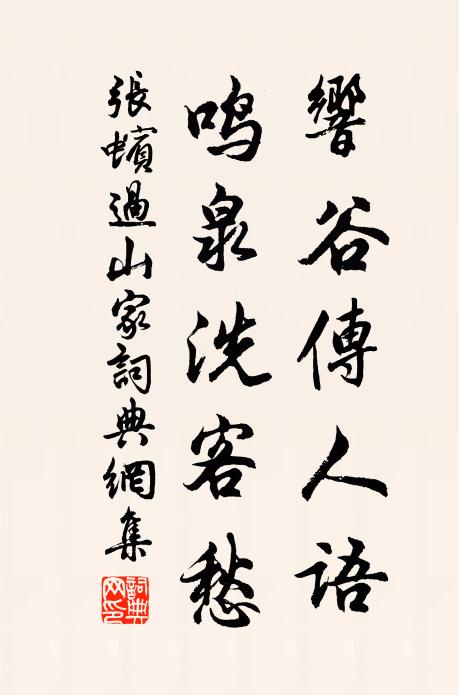 響谷傳人語
鳴泉洗客愁
張蠙過山家詞典網集
詞典網印